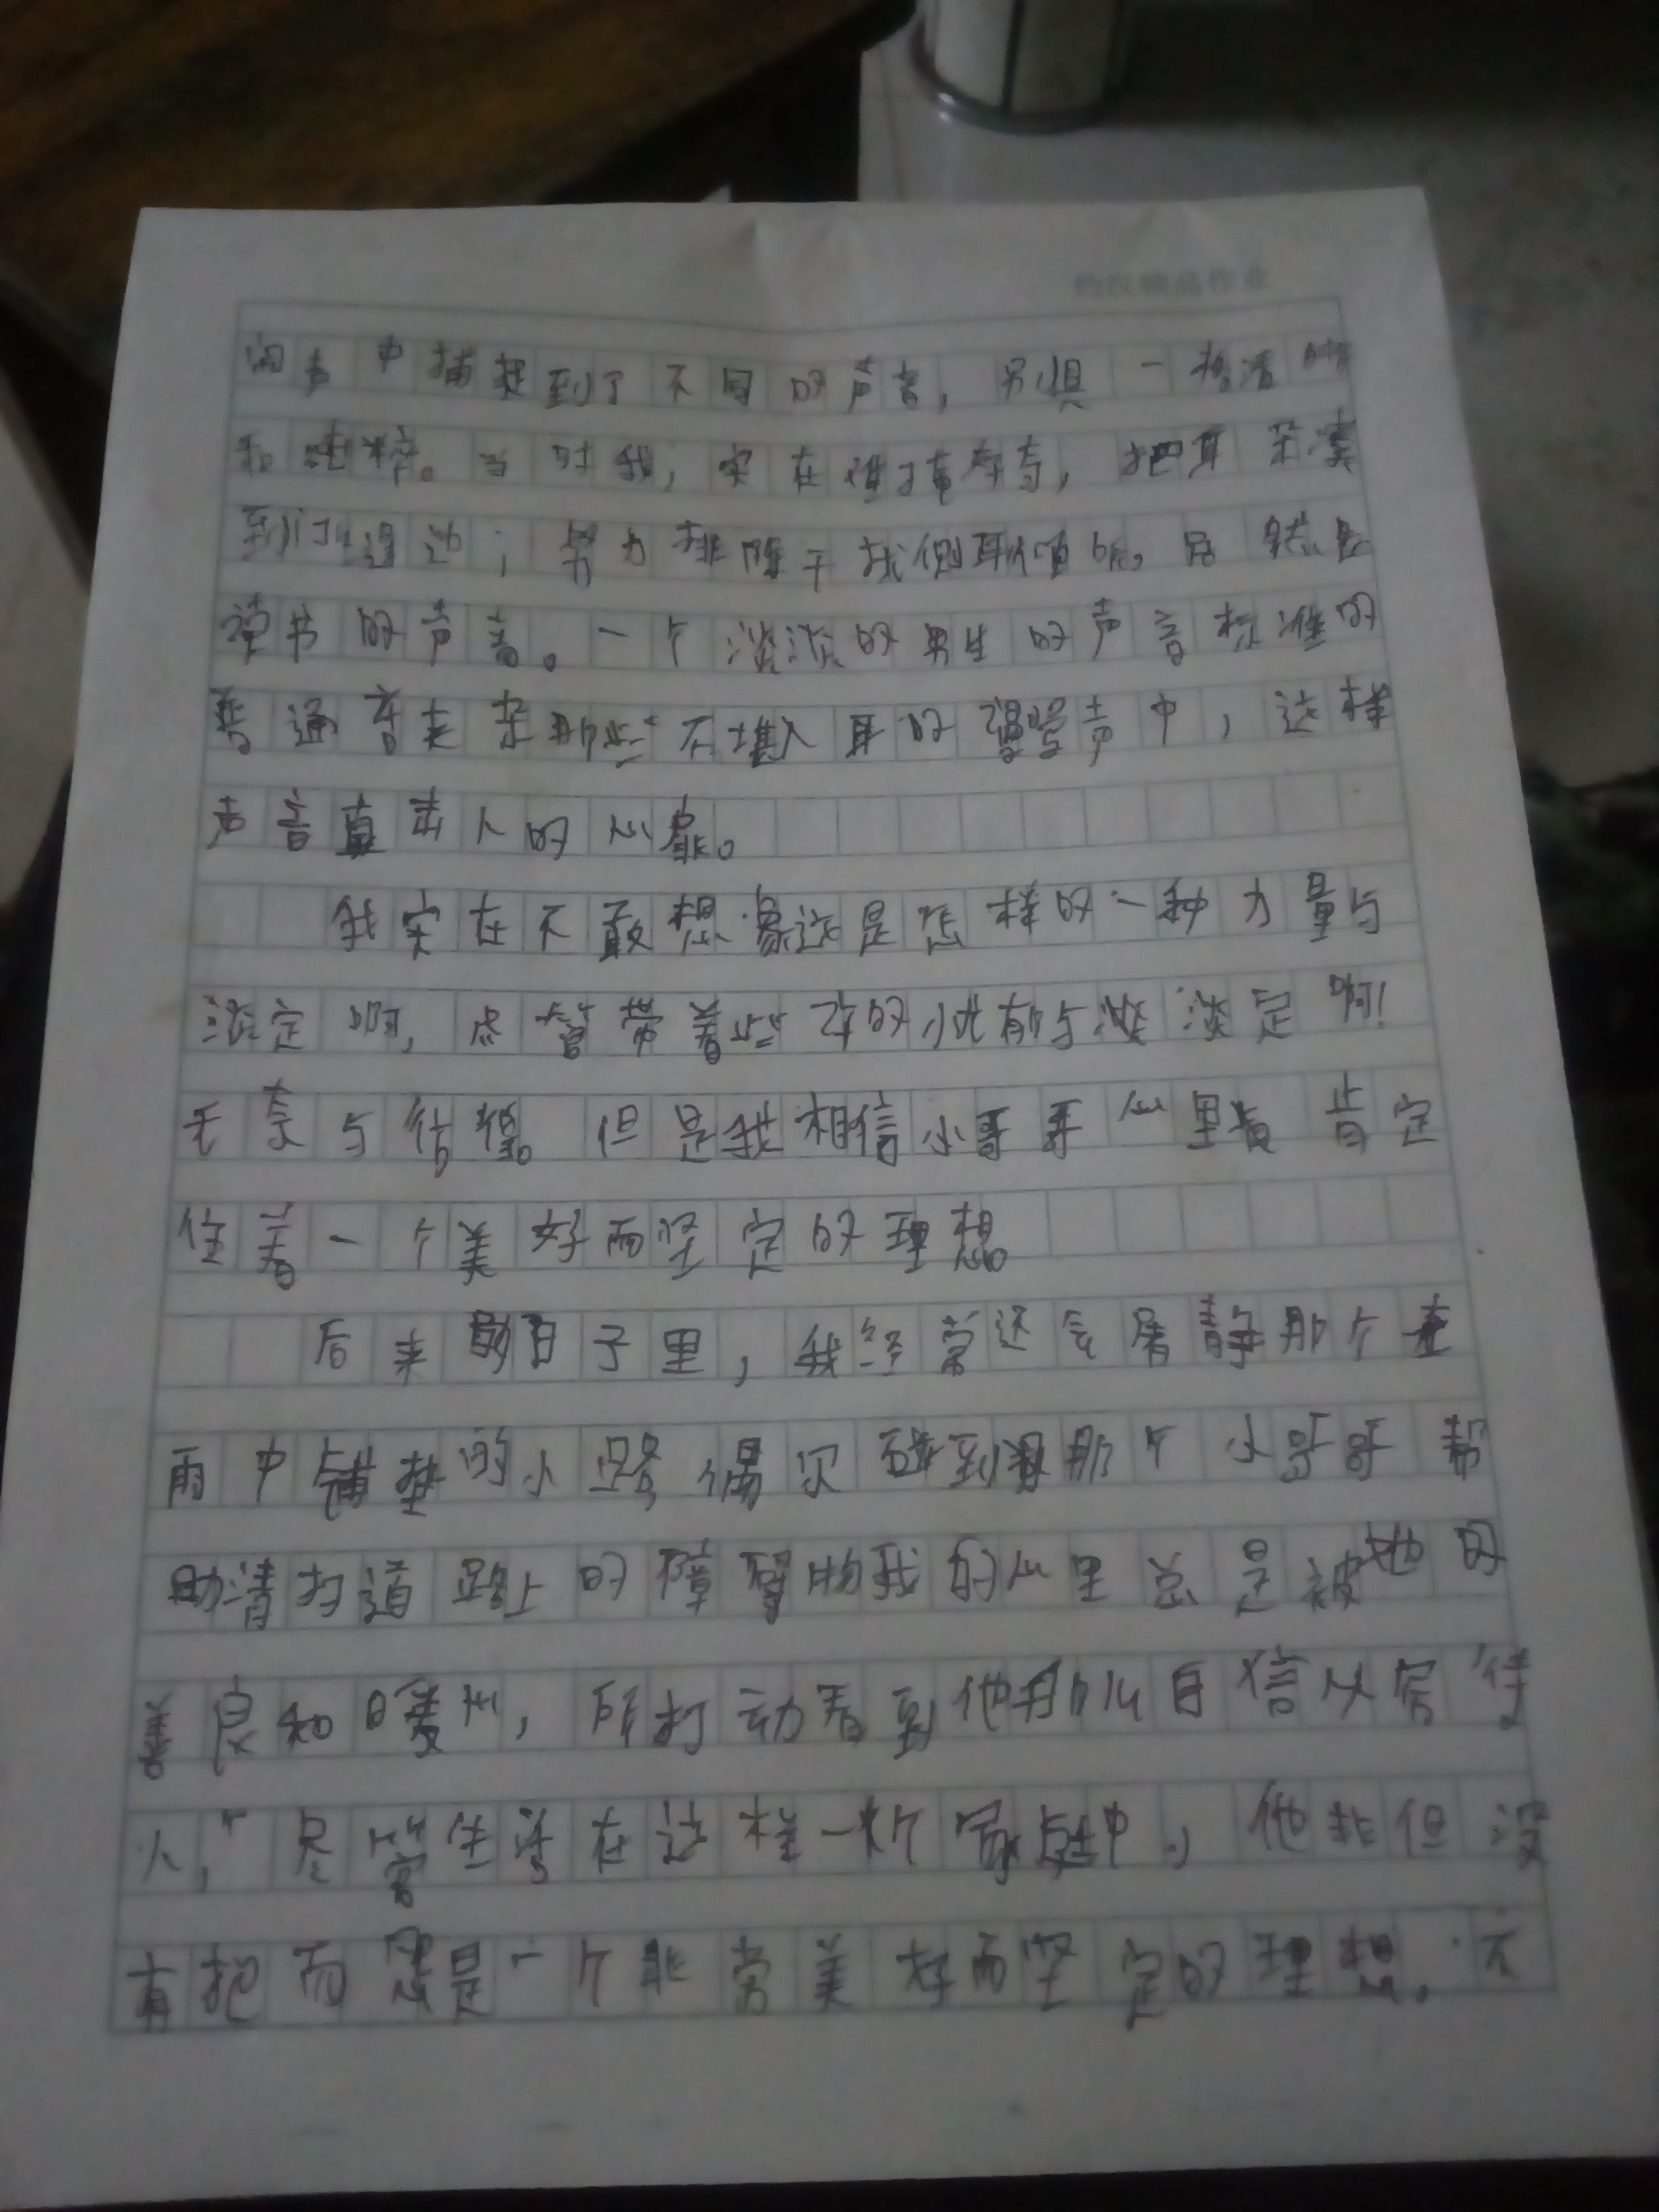 中捕捉到了不同的声音，另具一格清
和纯粹。当时我，实在 把耳朵凑
到 边；努力排除干扰侧耳倾听。居然是
读书的声音。一个淡淡的男生的声音标准的
普通音夹杂那些不堪入耳的 声中，这样
声音直击人的心靡。
我实在不敢想象这是怎样的一种力量与
淡定啊，尽管带着些 的 与淡淡定啊！
无奈与彷徨。但是我相信小哥哥心里 肯定
住着一个美好而坚定的理想。
后来的日子里，我经常还会 静那个在
雨中铺垫的小路偶尔碰到 那个小哥哥帮
助清扫道路上的障碍物我的心里总是被他的
善良和暖心，所打动看到他 自信以宽待
人，尽管生活在这样一个家庭中，他非但没
有把而 是一个非常美好而坚定的理想。不